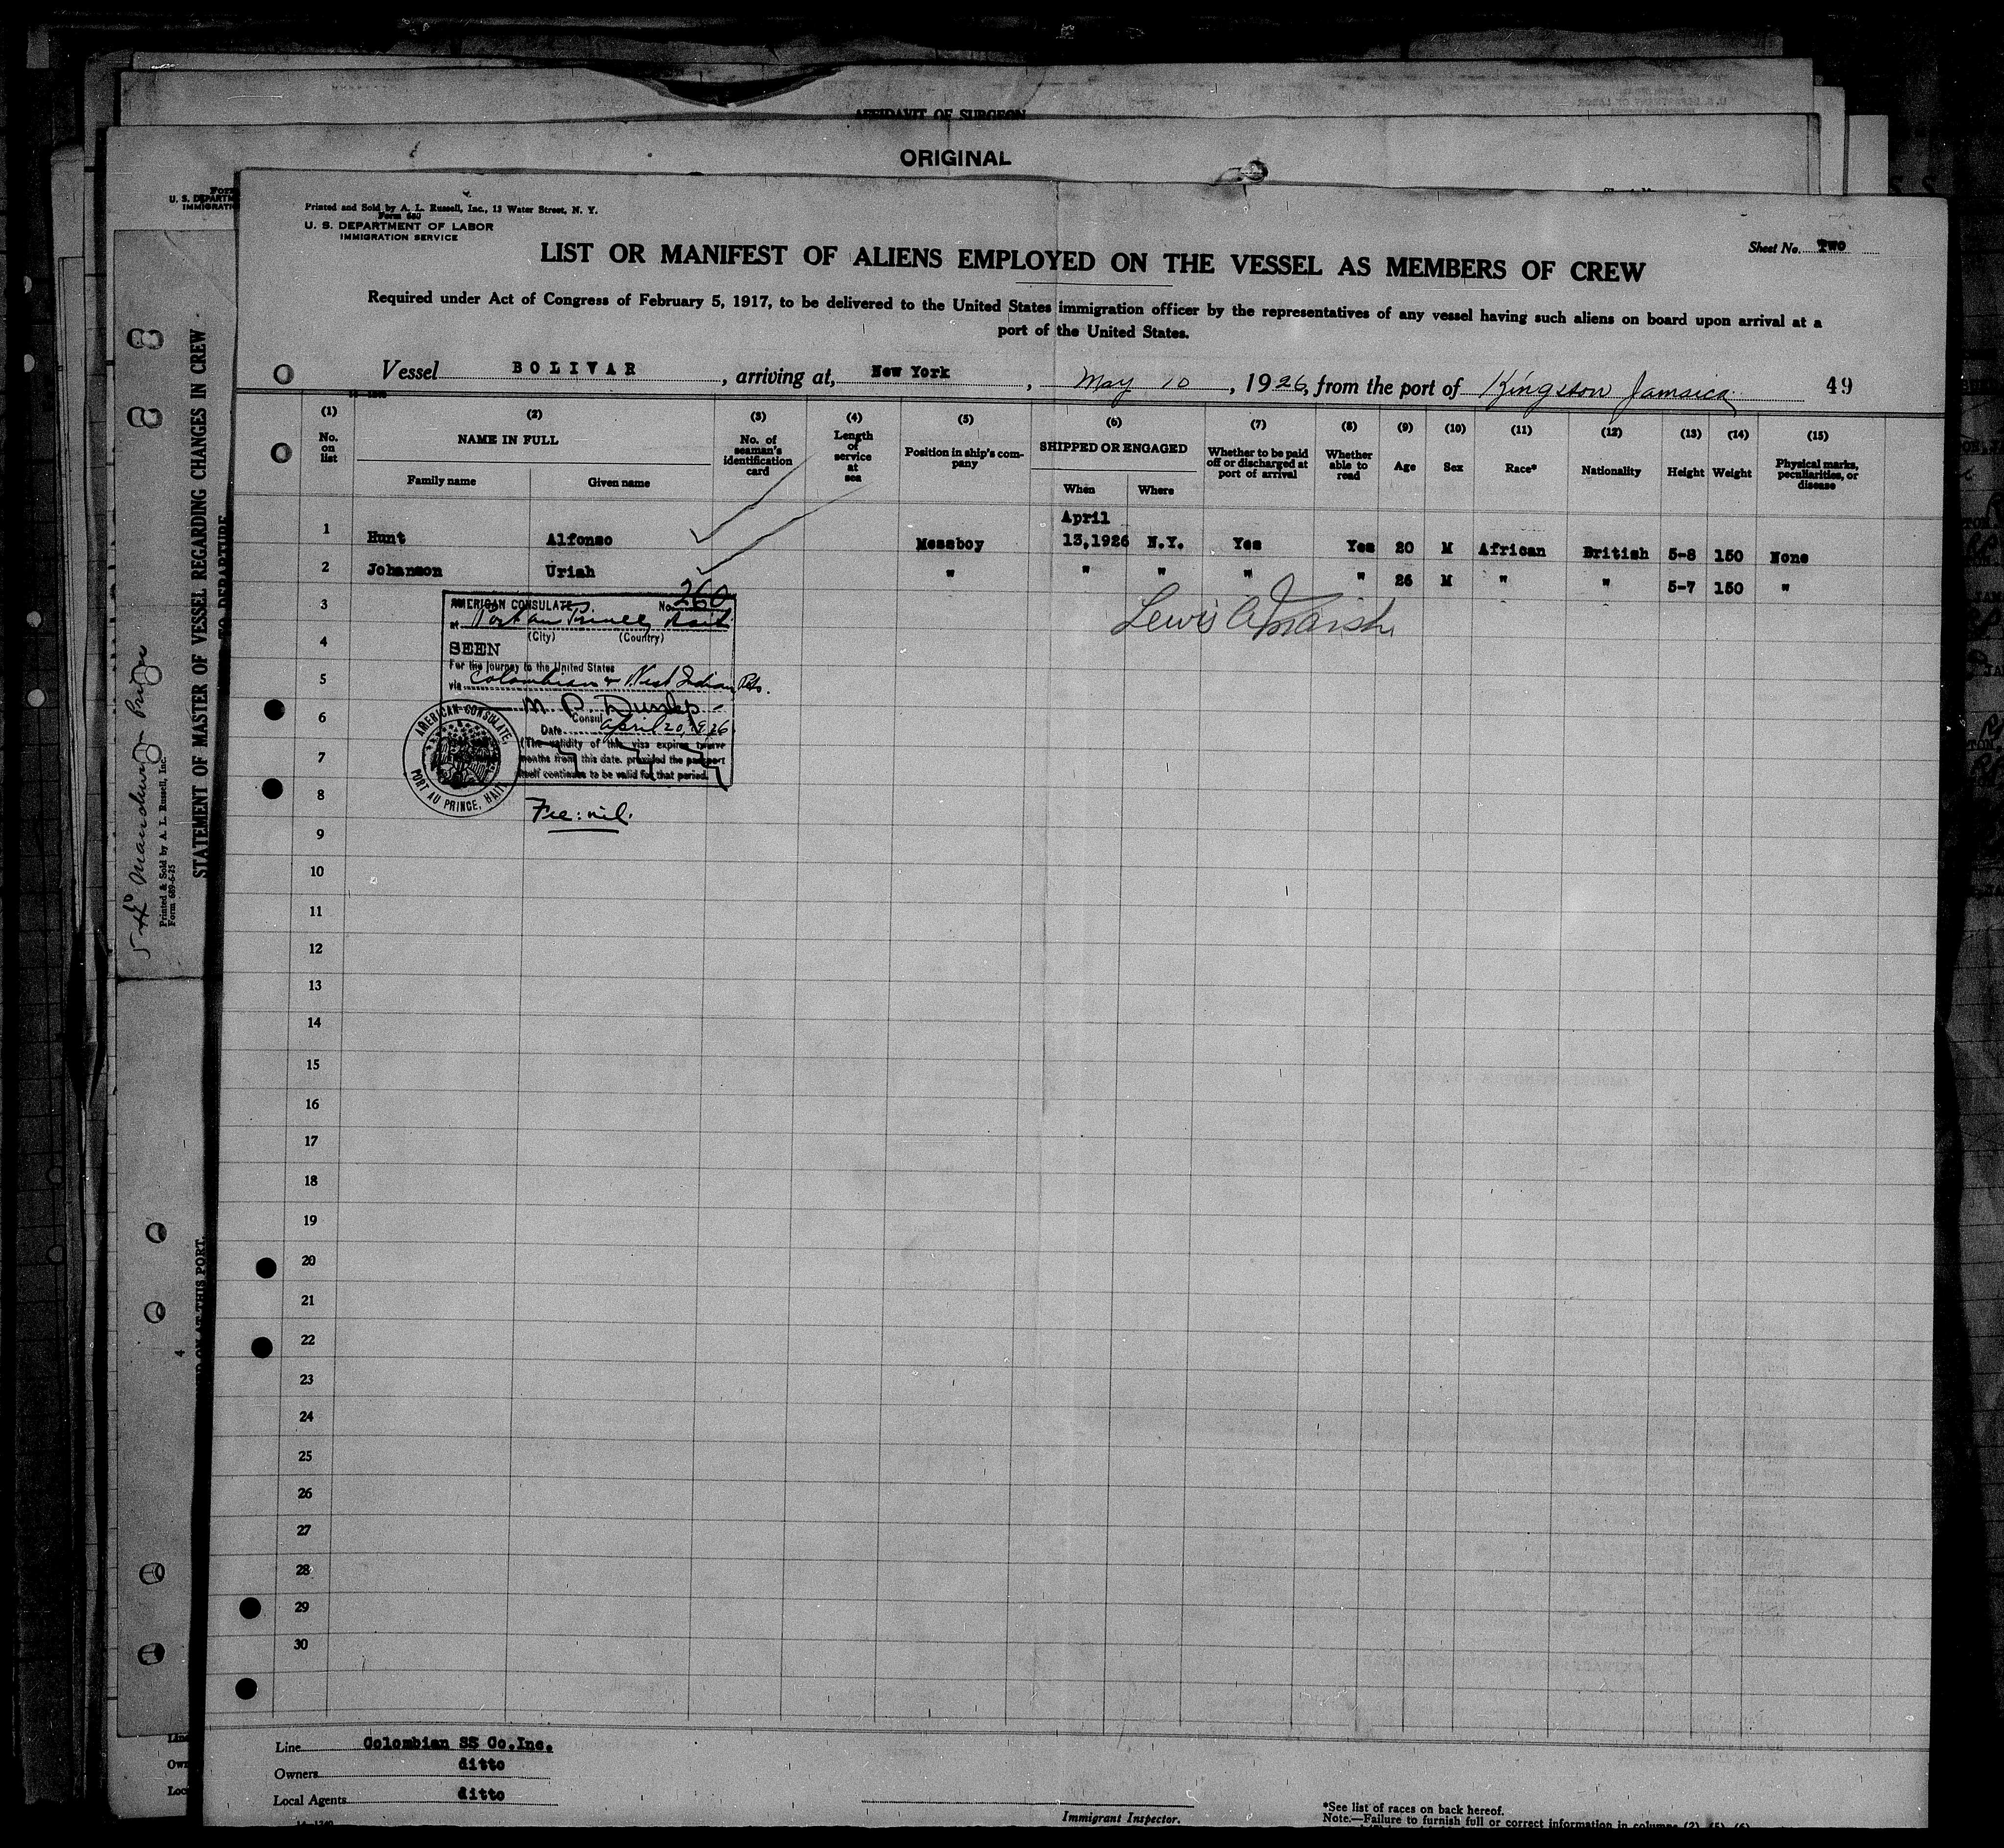 AFFIDAVIT OF SURGEON
ORIGINAL
U. S. DEPARTM
IMMIGRATI
Printed and Sold by A. L. Russell, Inc., 13 Water Street, N. Y.
Form 680
U. S. DEPARTMENT OF LABOR
IMMIGRATION SERVICE
Sheet No. Two
LIST OR MANIFEST OF ALIENS EMPLOYED ON THE VESSEL AS MEMBERS OF CREW
Required under Act of Congress of February 5, 1917, to be delivered to the United States immigration officer by the representatives of any vessel having such aliens on board upon arrival at a
port of the United States.
Vessel BOLIVAR, arriving at, New York, May 10, 1926, from the port of Kingston Jamaica 49
(1) No. on list
(2) NAME IN FULL
Family name Given name
(3) No. of seaman's identification card
(4) Length of service at sea
(5) Position in ship's company
(6) SHIPPED OR ENGAGED
When Where
(7) Whether to be paid off or discharged at port of arrival
(8) Whether able to read
(9) Age
(10) Sex
(11) Race*
(12) Nationality
(13) Height
(14) Weight
(15) Physical marks, peculiarities, or disease
1 Hunt Alfonso Messboy April 13,1926 N.Y. Yes Yes 20 M African British 5-8 150 None
2 Johanson Uriah " " " " " 26 M " " 5-7 150 "
3
4
5
6
7
8
9
10
11
12
13
14
15
16
17
18
19
20
21
22
23
24
25
26
27
28
29
30
Lewis A Marsh
AMERICAN CONSULATE No. 260
at Port au Prince, Haiti
(City) (Country)
SEEN
For the journey to the United States
via Colombian & West Indian Pts.
M. P. Dunlap
Consul
Date April 20, 1926
(The validity of this visa expires twelve
months from this date, provided the passport
itself continues to be valid for that period.)
AMERICAN CONSULATE,
PORT AU PRINCE, HAITI
Fee: nil.
Line Colombian SS Co.Inc.
Owners ditto
Local Agents ditto
Immigrant Inspector.
*See list of races on back hereof.
Note.—Failure to furnish full or correct information in columns (2), (5), (6)
STATEMENT OF MASTER OF VESSEL REGARDING CHANGES IN CREW
TO DEPARTURE
Printed & Sold by A. L. Russell, Inc.
Form 689-6-25
4
AT THIS PORT.